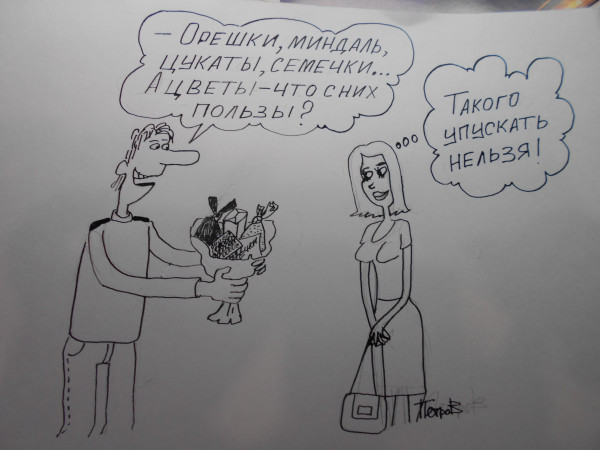 — Орешки, миндаль,
цукаты, семечки...
А цветы – что с них
пользы?
Такого
упускать
нельзя!
Петров